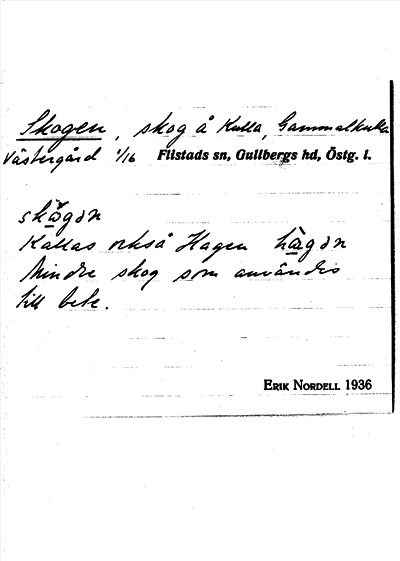 Skogen, skog å Kulla, Gammalkulla
Västergård 1/16 Flistads sn, Gullbergs hd, Östg. l.
skogən
Kallas också Hagen hagən
Mindre skog som användes
till bete.
ERIK NORDELL 1936